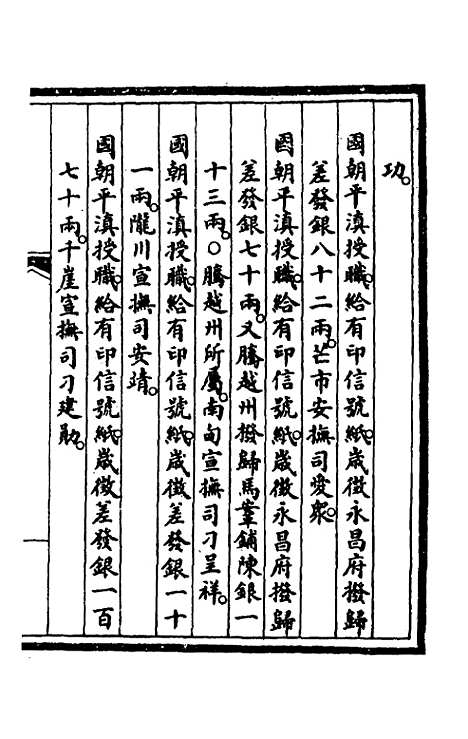 功。
國朝平滇授職。給有印信號紙。歲徵永昌府撥歸
差發銀八十二兩。芒市安撫司愛衆。
國朝平滇授職。給有印信號紙。歲徵永昌府撥歸
差發銀七十兩。又騰越州撥歸馬鞌鋪陳銀一
十三兩。〇騰越州所屬。南甸宣撫司刁呈祥。
國朝平滇授職。給有印信號紙。歲徵差發銀一十
一兩。隴川宣撫司安靖。
國朝平滇授職。給有印信號紙。歲徵差發銀一百
七十兩。千崖宣撫司刁建勛。